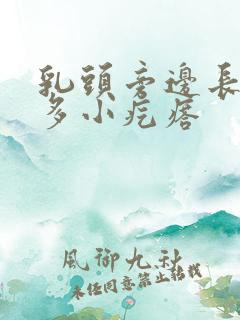 乳頭旁邊長
多小疙瘩
風御九秋
未经同意禁止转载